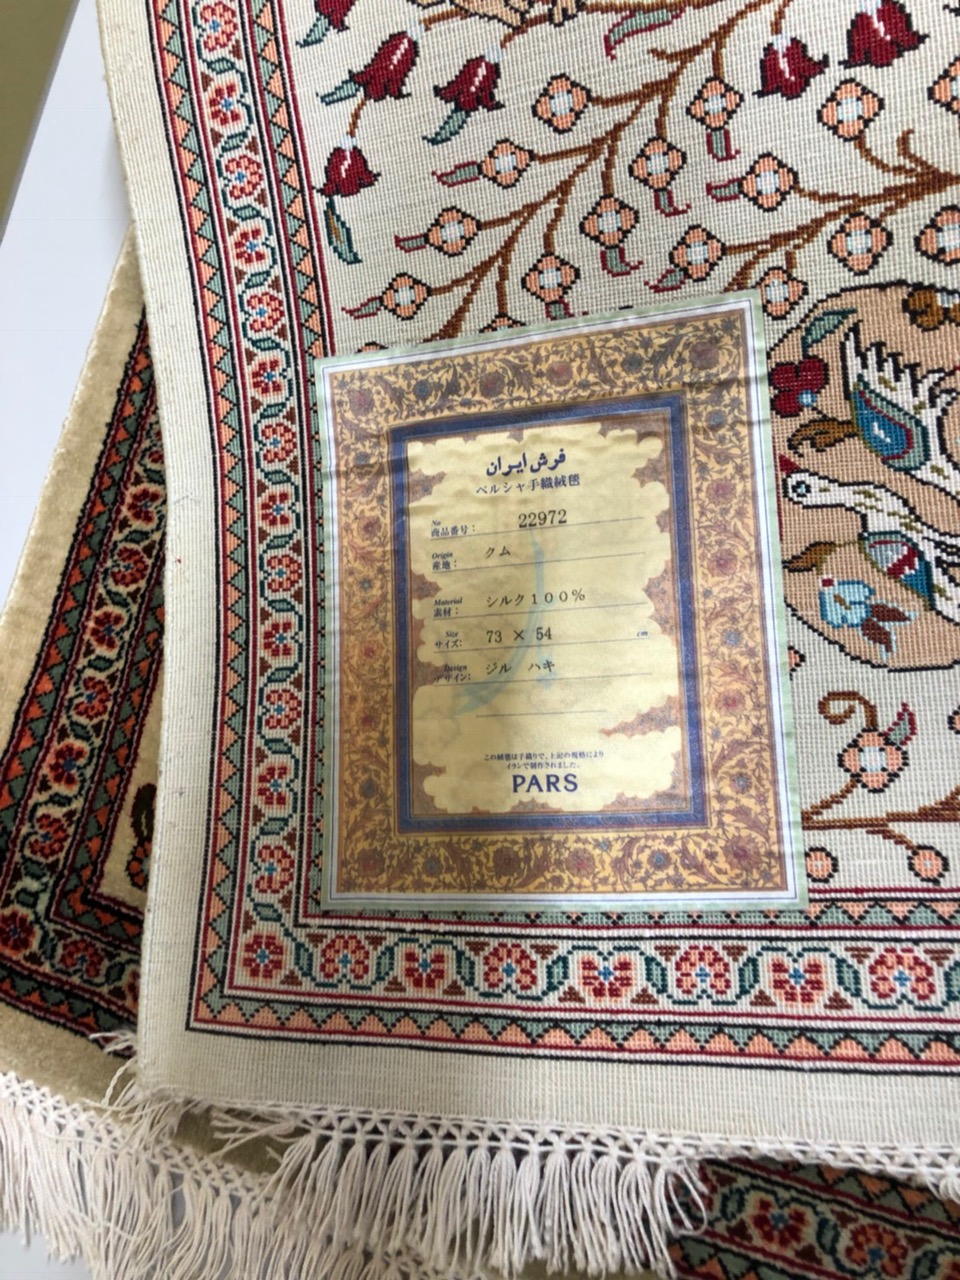 فرش ایران
ペルシャ手織絨毯
No
商品番号： 22972
Origin
産地： クム
Material
素材： シルク１００％
Size
サイズ: 73 × 54 cm
Design
デザイン: ジル ハキ
この絨毯は手織りで、上記の規格により
イランで制作されました。
PARS